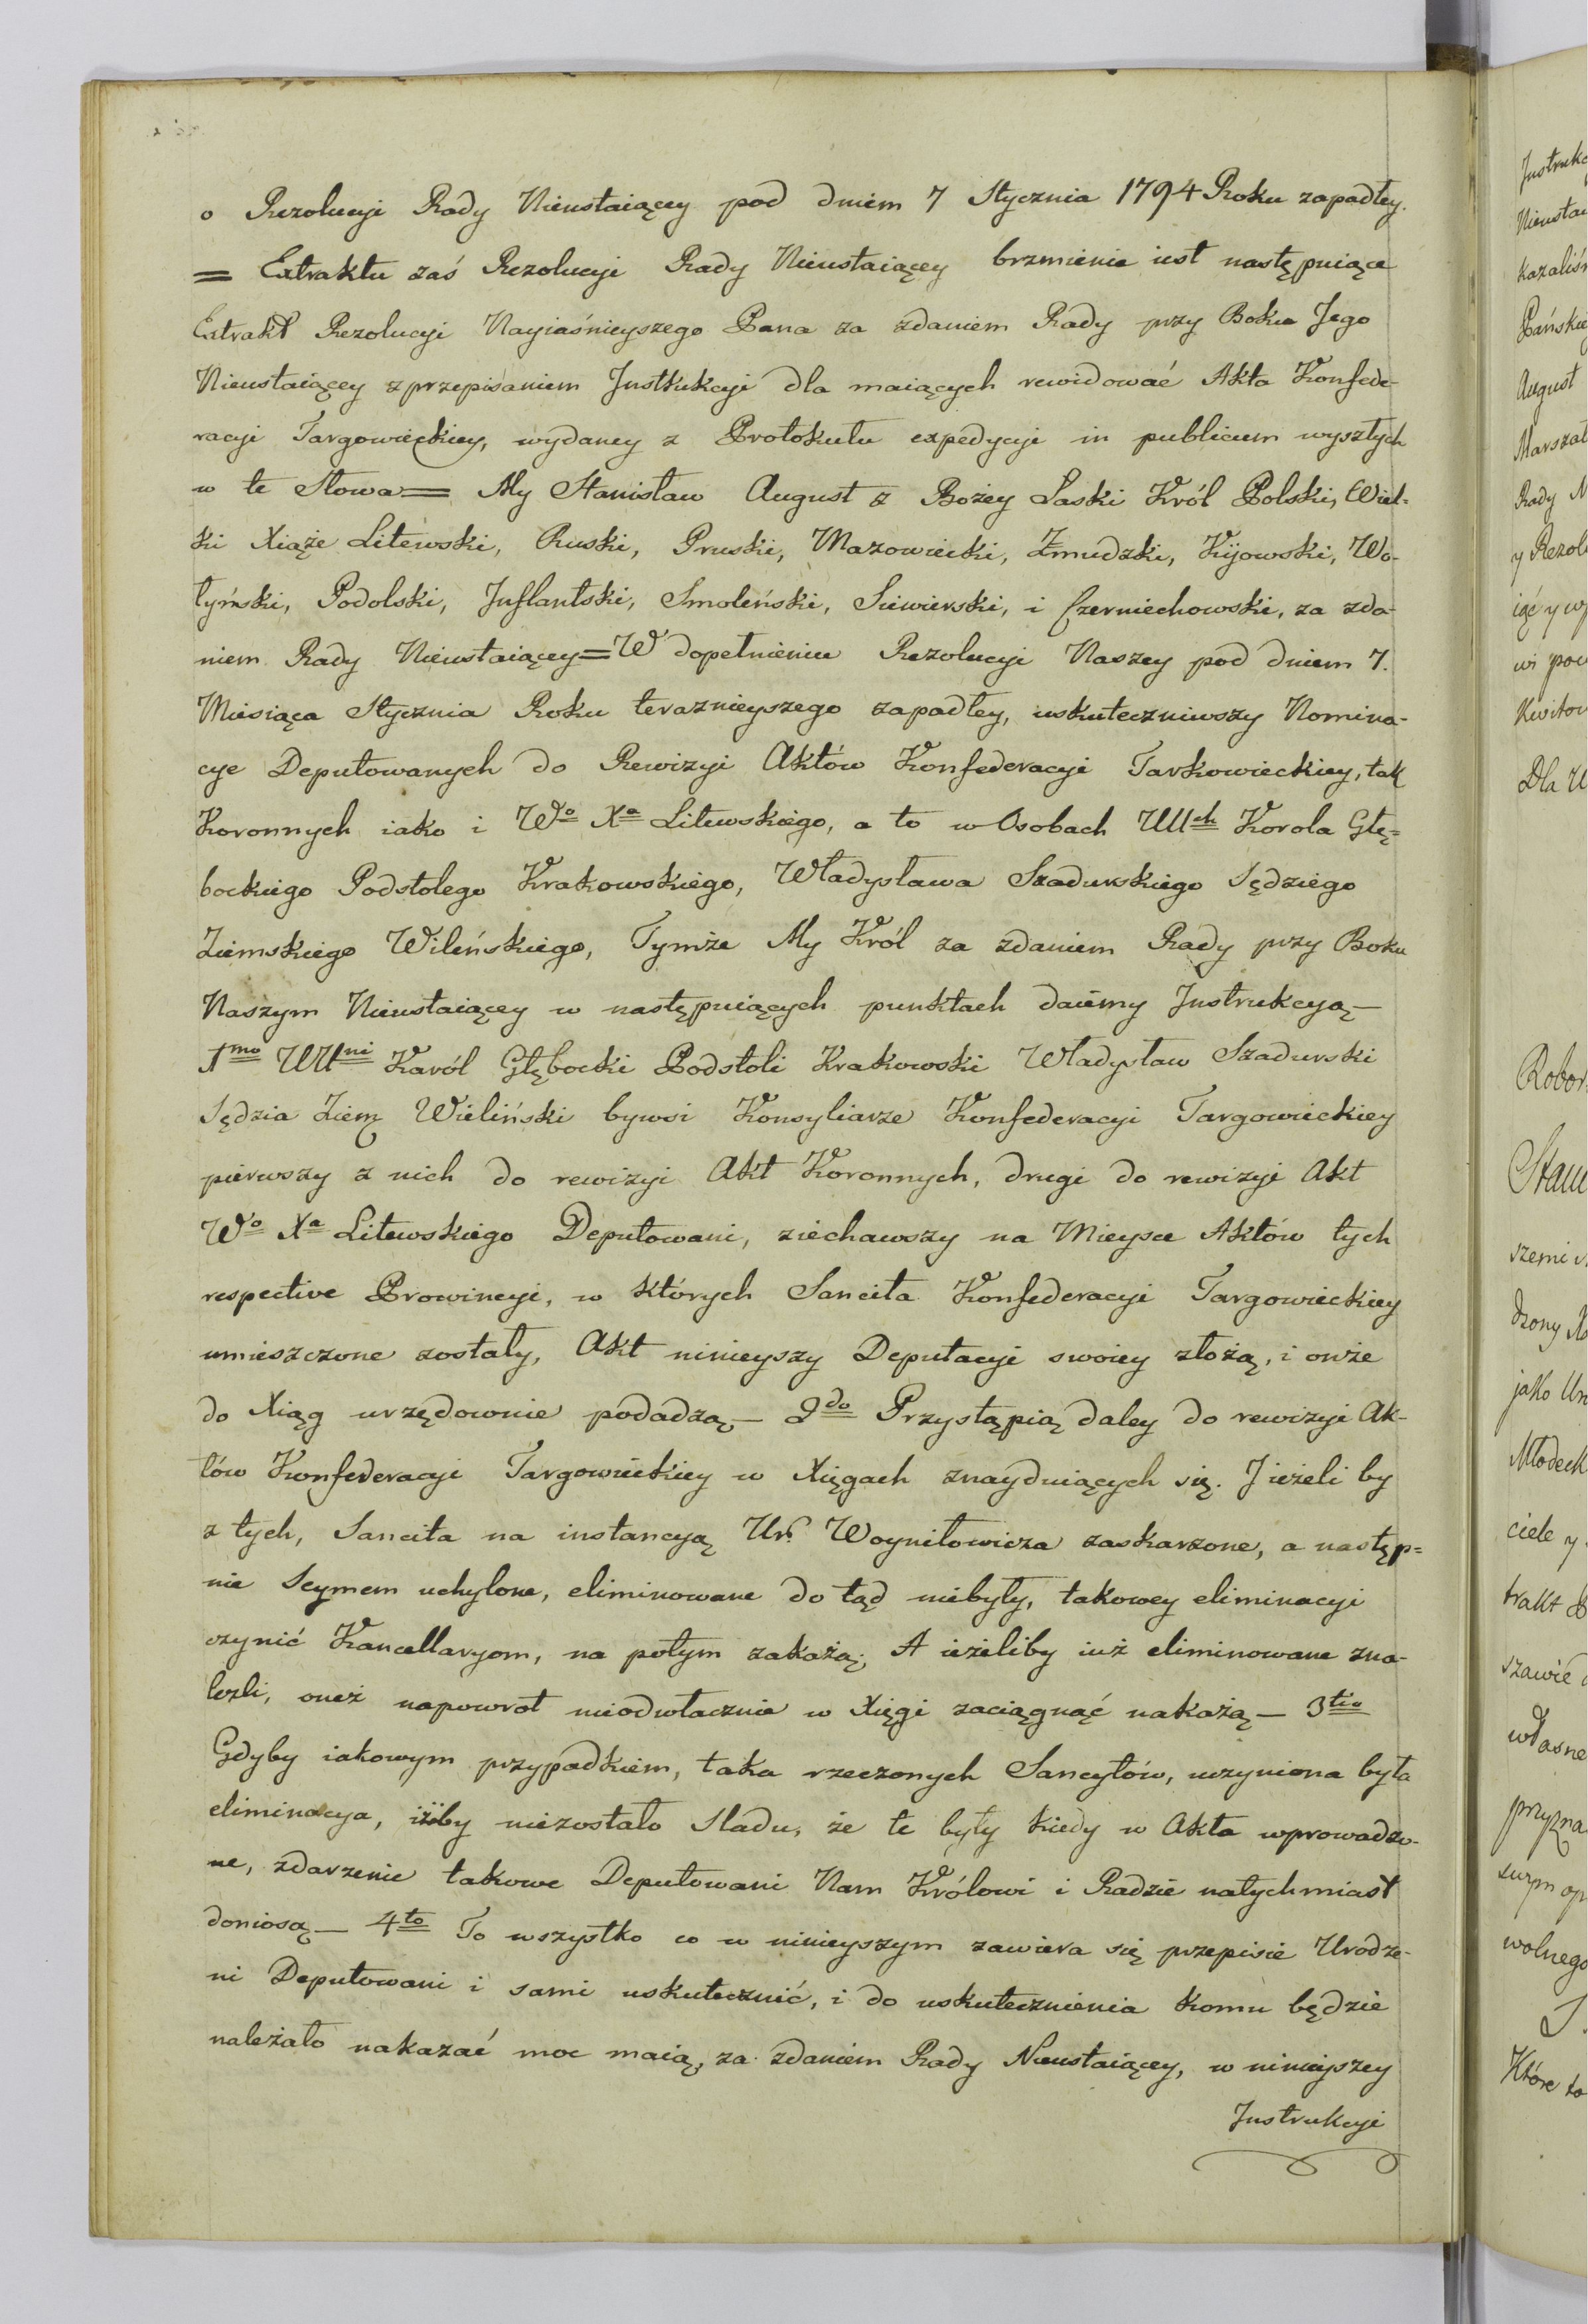 o Rezolucyi Rady Nieustaiącey pod dniem 7 Stycznia 1794 Roku zapadłey.
= Extraktu zaś Rezolucyi Rady Nieustaiącey brzmienie iest następuiące
Extrakt Rezolucyi Nayiaśnieyszego Pana za zdaniem Rady przy Boku Jego
Nieustaiącey z przepisaniem Instrukcyi dla maiących rewidować Akta Konfede-
racyi Targowieckiey, wydaney z Protokułu expedycyi in publicum wyszłych
w te Słowa = My Stanisław August z Bożey Łaski Król Polski, Wiel-
ki Xiąże Litewski, Ruski, Pruski, Mazowiecki, Żmudzki, Kijowski, Wo-
łyński, Podolski, Inflantski, Smoleński, Siewierski, i Czerniechowski, za zda-
niem Rady Nieustaiącey = W dopełnieniu Rezolucyi Naszey pod dniem 7.
Miesiąca Stycznia Roku terazniejszego zapadłey, uskuteczniwszy Nomina-
cye Deputowanych do Rewizyi Aktów Konfederacyi Tarkowieckiey, tak
Koronnych iako i Wo Xa Litewskiego, a to w Osobach UUch Korola Głę-
bockiego Podstolego Krakowskiego, Władysława Szadurskiego Sędziego
Ziemskiego Wileńskiego, Tymże My Król za zdaniem Rady przy Boku
Naszym Nieustaiącey w następuiących punktach daiemy Instrukcyą —
1mo UUni Karól Głębocki Podstoli Krakowski Władysław Szadurski
Sędzia Ziem Wieliński bywsi Konsyliarze Konfederacyi Targowieckiey
pierwszy z nich do rewizyi Akt Koronnych, drugi do rewizyi Akt
Wo Xa Litewskiego Deputowani, ziechawszy na Mieysce Aktów tych
respective Prowincyi, w których Sancita Konfederacyi Targowieckiey
umieszczone zostały, Akt ninieyszy Deputacyi swoiey złożą, i onże
do Xiąg urzędownie podadzą — 2do Przystąpią daley do rewizyi Ak-
tów Konfederacyi Targowieckiey w Xięgach znayduiących się. Jieżeli by
z tych, Sancita na instancyą Ur. Woyniłowicza zaskarzone, a następ-
nie Seymem uchylone, eliminowane do tąd niebyły, takowey eliminacyi
czynić Kancellaryom, na potym zakażą; A ieżeliby iuż eliminowane zna-
lezli, oneż napowrot nieodwłacznie w Xięgi zaciągnąć nakażą — 3tio
Gdyby iakowym przypadkiem, taka rzeczonych Sancytów, uczyniona była
eliminacya, iżby niezostało Sladu, że te były kiedy w Akta wprowadzo-
ne, zdarzenie takowe Deputowani Nam Królowi i Radzie natychmiast
doniosą — 4to To wszystko co w ninieyszym zawiera się przepisie Urodze-
ni Deputowani i sami uskutecznić, i do uskutecznienia komu będzie
należało nakazać moc maią, za zdaniem Rady Nieustaiącey, w ninieyszey
Instrukcyi